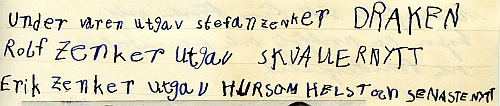 Under varen utgav stefan zenker DRAKEN
Rolf Zenker utgav SKVALLERNYTT
Erik Zenker utgav HURSOM HELST och SENASTE NYTT